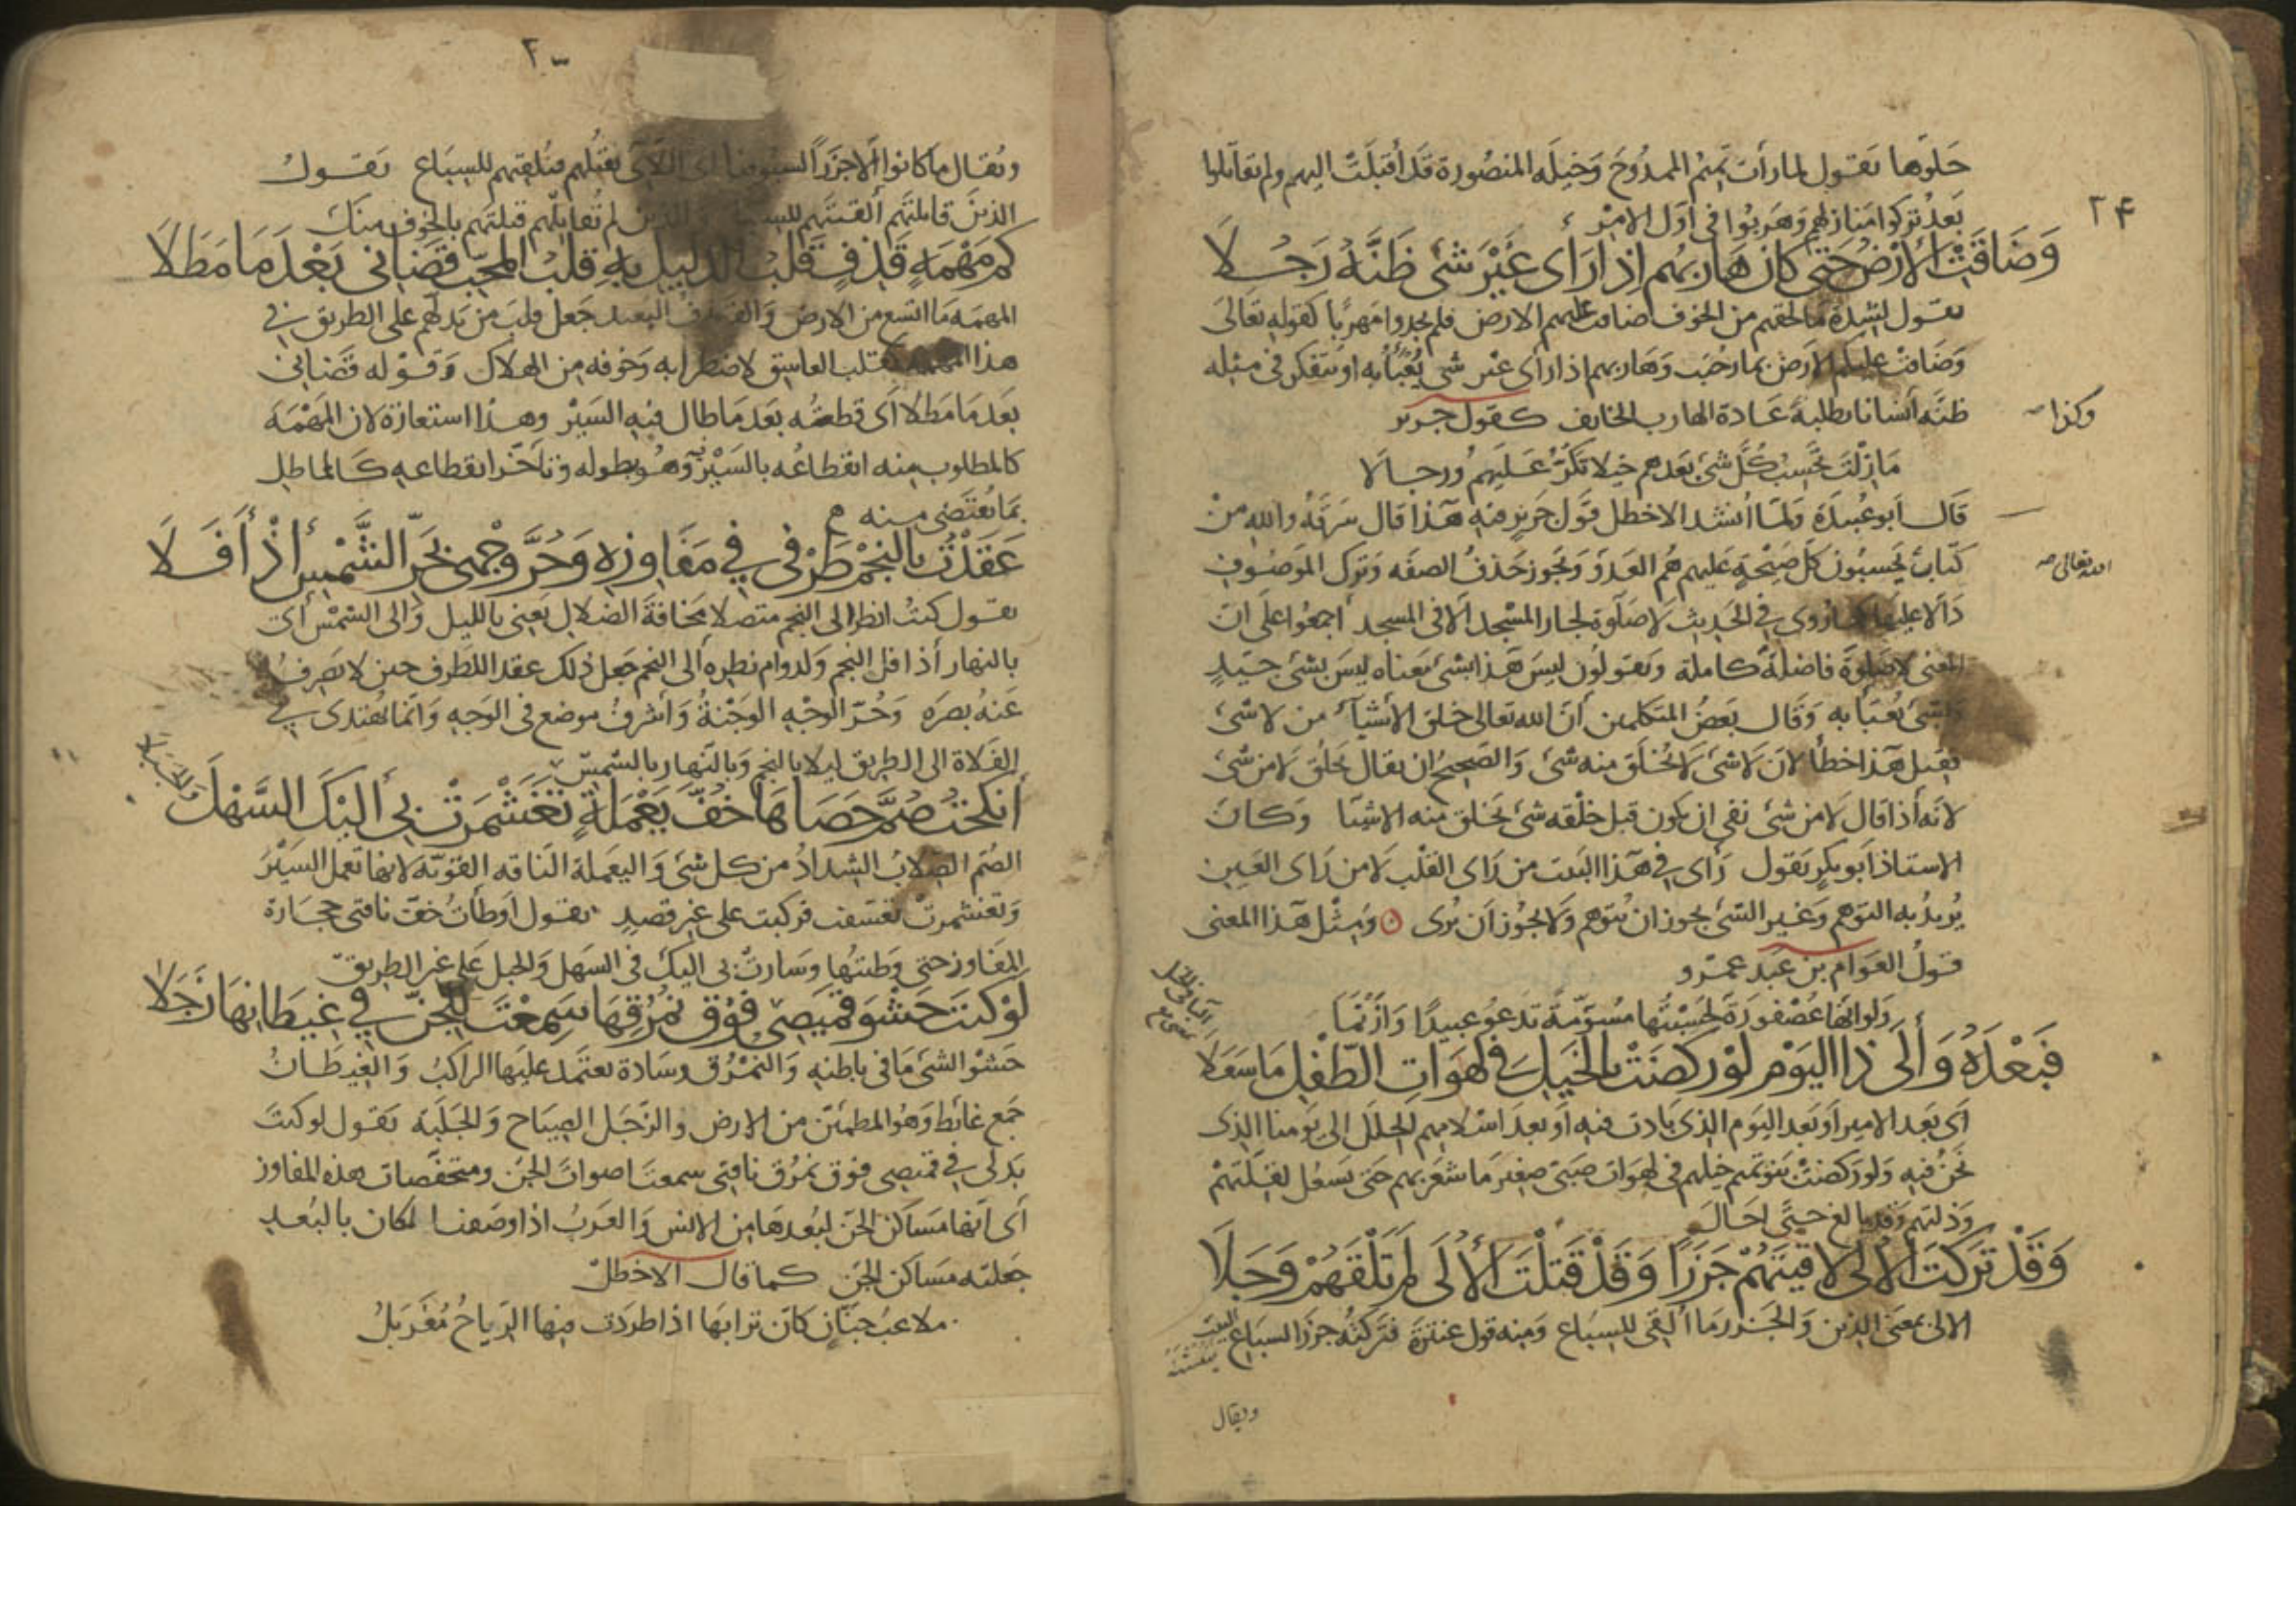 ٢٤
حلوها يقول لما رأت تميم الممدوح وخيله المنصورة قد أقبلت اليهم ولم تقاتلوا
بعد تركوا منازلهم وهربوا فى أول الامر
وَضَاقَتْ الأَرْضُ حَتَّى كان هَاربُهُم إذا رَأى غَيْرَ شَىْءٍ ظَنَّهُ رَجُلَا
يقول لشدة ما لحقهم من الخوف ضاقت عليهم الارض فلم يجدوا مهربًا كقوله تعالى
وضاقت عليكم الارض بما رحبت وهاربهم اذا رأى غير شىء يُعبأ به او يتفكر فى مثله
ظنه انسانا يطلبه عادة الهارب الخايف كقول جرير
وكذا
مَا زِلْتَ تحسِبُ كلَّ شىء بعدهم خيلا تكرّ عليهم ورجالا
قال أبو عبيدة ولما انشد الاخطل قول جرير منه هذا قال سرقه والله من
كتاب يحسبون كل صيحة عليهم هم العدو ويجوز حذف الصفه وترك الموصوف
الله تعالى
دالا عليها كما روى فى الحديث لا صلوة لجار المسجد الا فى المسجد اجمعوا على ان
المعنى لا صلوة فاضلة كاملة ويقولون ليس هذا بشىء معناه ليس بشىء جيد
وبشىء يُعبأ به وقال بعض المتكلمين أن الله تعالى خلق الأشياء من لا شىء
فقيل هذا خطأ لان لا شىء لا يُخلق منه شىء والصحيح ان يقال يخلق لا من شىء
لانه أذا قال لا من شىء نفى ان يكون قبل خلقه شىء يخلق منه الاشيا وكان
الاستاذ أبو بكر يقول رأى فى هذا البيت من رأى القلب لا من رأى العين
يُريدُ به التوهم وغير الشىء يجوز ان يتوهم ولا يجوز أن يُرى ومثل هذا المعنى
قول العوام بن عبد عمرو
ولو انها عصفورة لحسبتها مسومة تدعو عبيدًا وأزنما
فَبَعْدَهُ وَإِلَى ذا اليَوْمِ لَوْ ركضَتْ بالخَيْلِ فى لهَوَاتِ الطِّفْلِ مَا سَعَلَا
أى بعد الامير أو بعد اليوم الذى بادت فيه أو بعد اسلامهم الحلل الى يومنا الذى
نحن فيه ولو ركضت بنو تميم خيلهم فى لهوات صبىّ صغير ما شعر بهم حتى يسعل لقلتهم
وذلتهم وقد بالغ حتى احال
وَقَدْ تَرَكتَ الأُلى لاقَيْتَهُمْ جَزَرًا وَقَدْ قَتَلْتَ الأُلَى لَمْ تَلْقَهُمْ وَجَلَا
الالى بمعنى الذين والجزر ما أُلقى للسباع ومنه قول عنترة فتركته جزر السباع
البيت
ويقال
٢٠
ويقال ما كانوا الا جزرًا لسيوفنا اى اللاتى نقتلهم فنلقيهم للسباع يقول
الذين قاتلتهم ألقيتهم للسباع والذين لم تُقاتلهم قتلتهم بالخوف منك
كم مَهْمَهٍ قَذَفٍ قَلبُ الدَّليلِ بِهِ قَلْبُ المُحِبّ قَضَانى بَعْدَ مَا مَطَلَا
المهمه ما اتسع من الارض والقذف البعيد جعل قلب من يدلهم على الطريق فى
هذا المهمه كقلب العاشق لاضطرابه وخوفه من الهلاك وقوله قضانى
بعد ما مطلا أى قطعته بعد ما طال فيه السير وهذا استعارة لان المهمه
كالمطلوب منه انقطاعه بالسير فيه وهو بطوله وتأخر انقطاعه كالماطل
بما يُقتضى منه
عَقَدْتُ بالنَّجْمِ طَرْفى فى مَفَاوِزه وَحُرَّ وجْهى بحَرِّ الشَّمْسِ إذْ أَفَلَا
يقول كنتُ انظر الى النجم متصلا مخافة الضلال يعنى بالليل والى الشمس أى
بالنهار أذا افل النجم ولدوام نظره الى النجم جعل ذلك عقد اللطرف حين لا يصرف
عنه بصره وحُرّ الوجه الوجنة وأشرف موضع فى الوجه وانما يُهتدى فى
الفلاة الى الطريق ليلا بالنجم وبالنهار بالشمس
أَنكحْتُ صُمَّ حَصَاهَا خُفَّ يَعْمَلَةٍ تَغَشْمَرَتْ بى إِلَيْكَ السَّهْلَ
والجبلا
الصُّم الصلاب الشداد من كل شىء واليعملة الناقه القويّة لانها تعمل السير
وتغشمرت تعسفت فركبت على غير قصد يقول أوطأتُ خفّ ناقتى حجارة
المفاوز حتى وطئتها وسارت بى اليك فى السهل والجبل على غير الطريق
لَوْ كُنتَ حَشْوَ قَمِيصى فَوْقَ نُمْرُقِهَا سَمِعْتَ لِلجِنّ فى غِيطَانِهَا زَجَلَا
حشو الشىء ما فى باطنه والنمرق وسادة يعتمد عليها الراكب والغيطان
جمع غائط وهو المطمئن من الارض والزجل الصياح والجلبة يقول لو كنت
بدلى فى قميصى فوق نمرق ناقتى سمعت اصوات الجن ومنخفضات هذه المفاوز
أى انها مساكن الجن لبعدها من الانس والعرب اذا وصفت المكان بالبعد
جعلته مساكن الجن كما قال الاخطل
ملاعب جنّان كان ترابها اذا اطردت فيها الرياح مُغربل